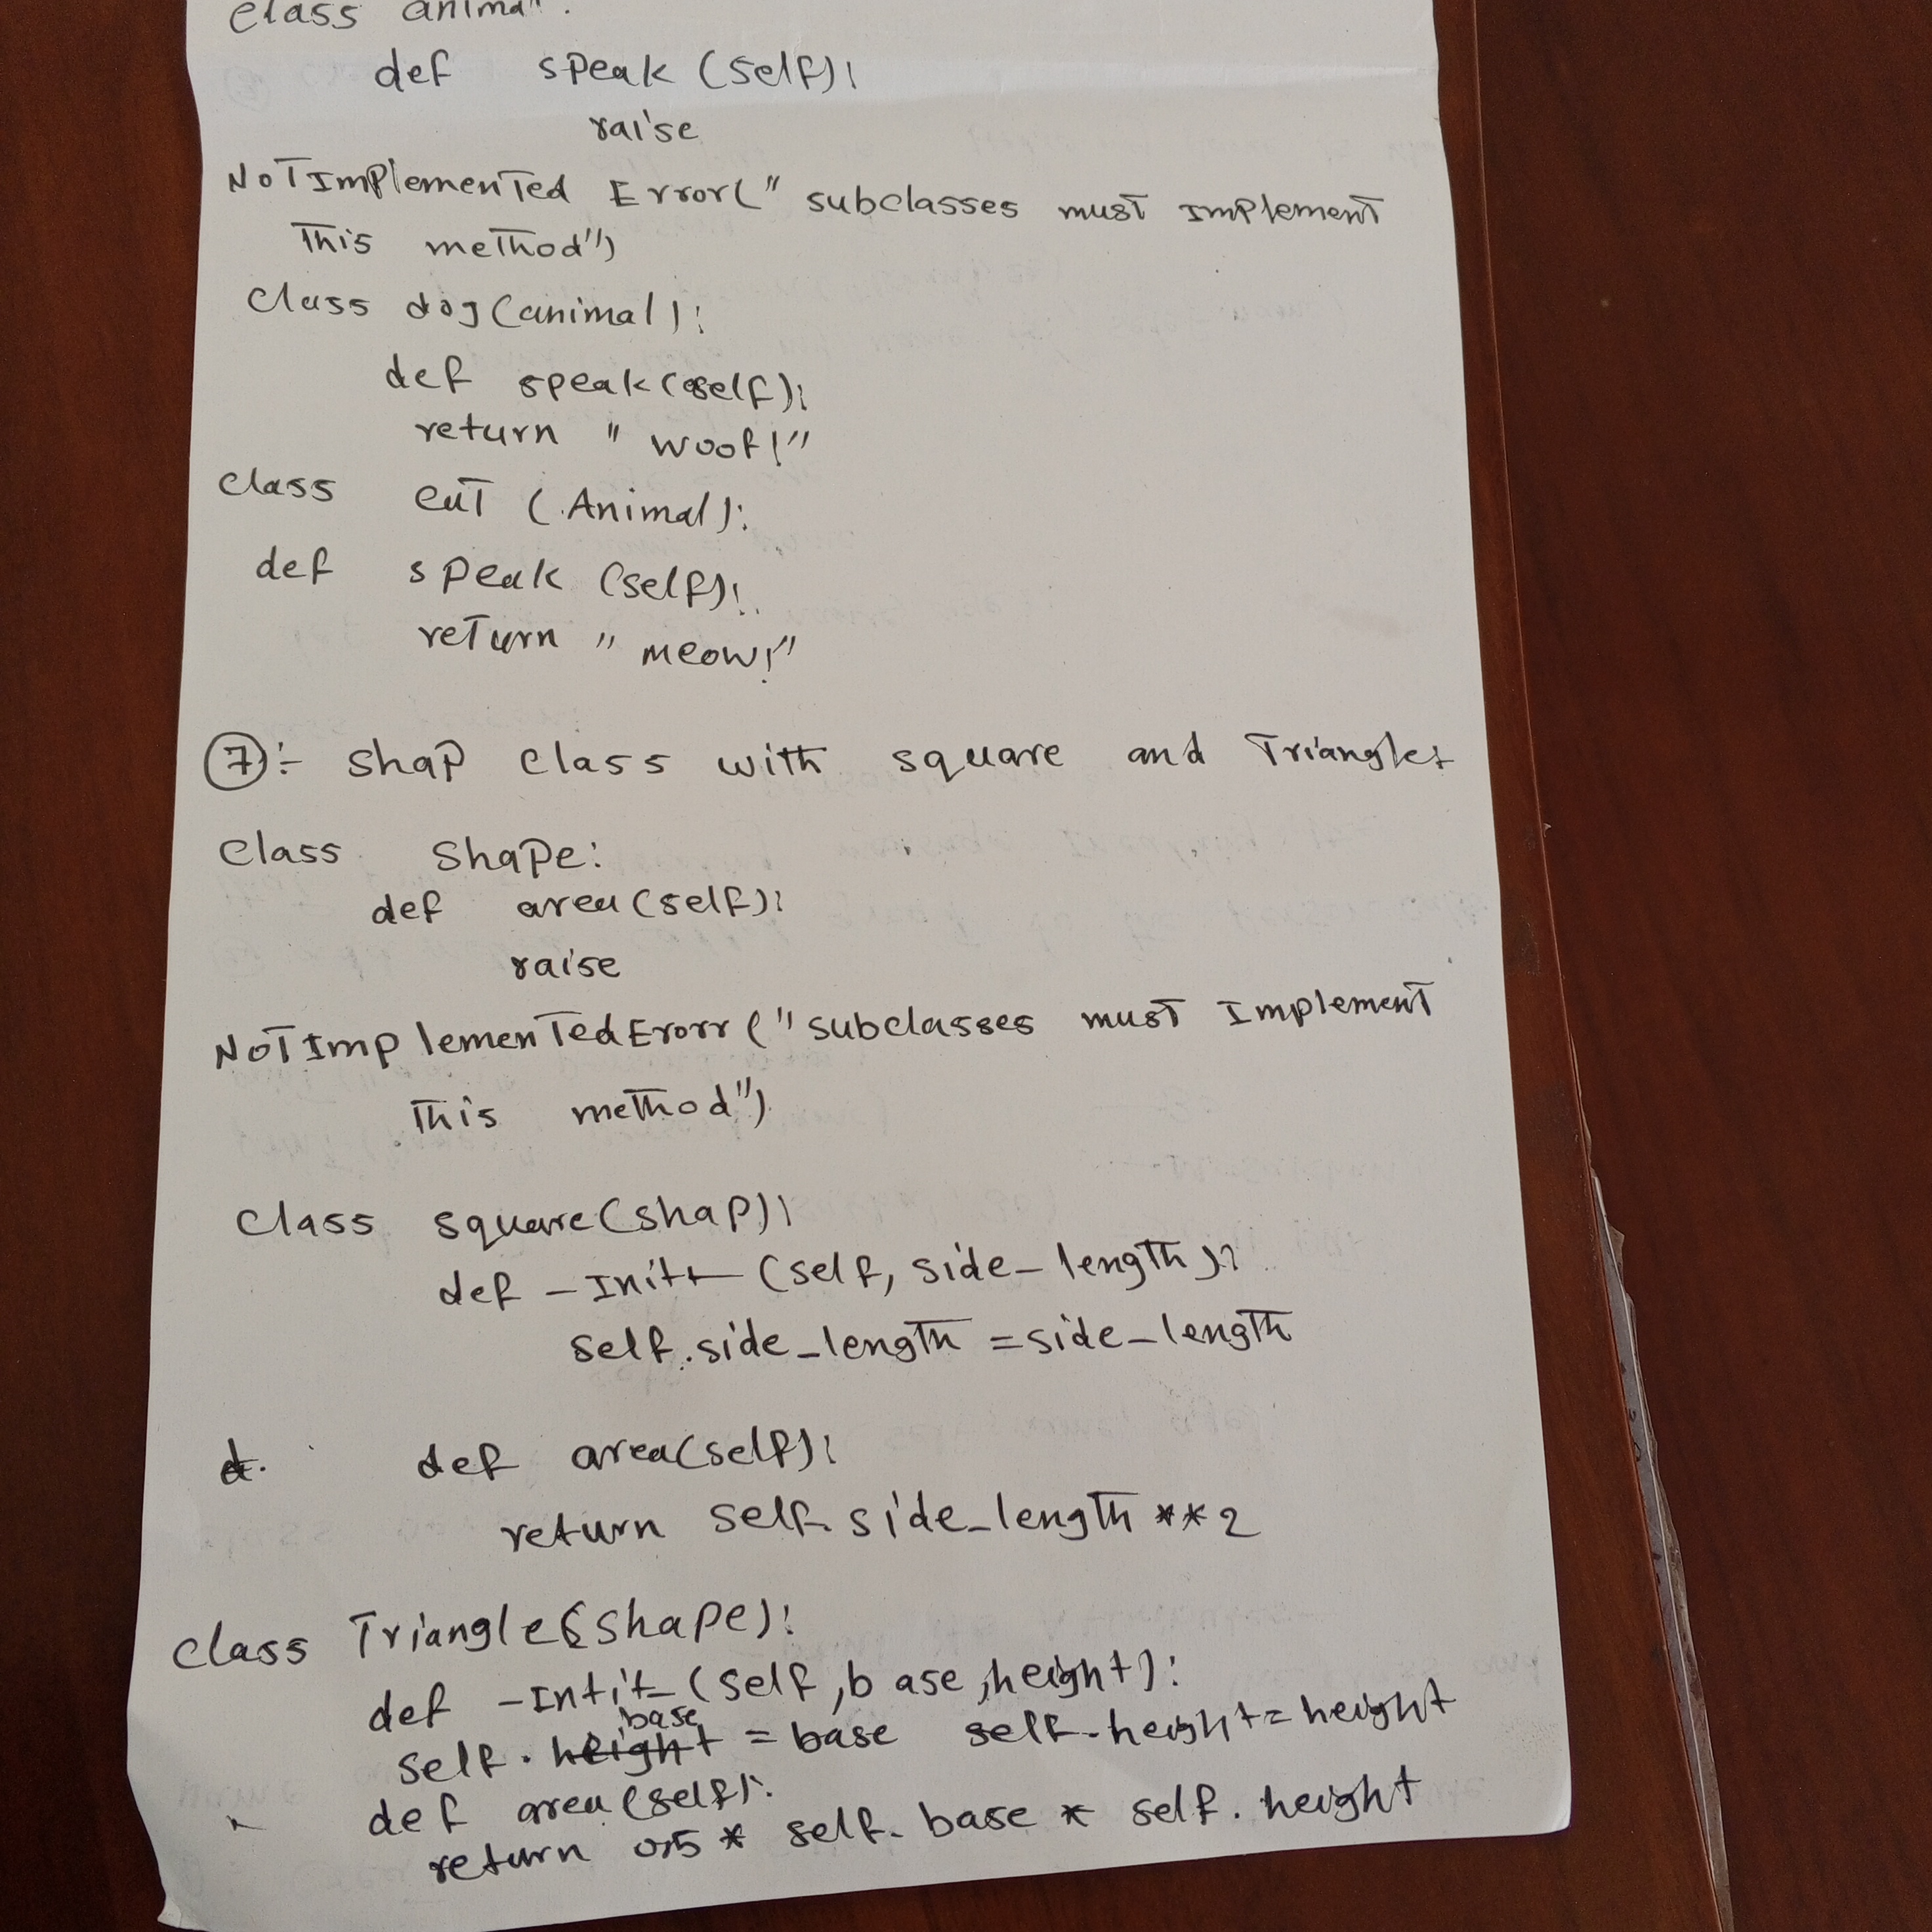 class animal:
def speak (self):
raise
NotImplemented Error(" subclasses must implement
This method")
class dog(animal):
def speak(self):
return " woof!"
class cat (Animal):
def speak (self):
return " meow!"
7:- shap class with square and Triangles
class shape:
def area(self):
raise
NotImplementedErorr("subclasses must Implement
This method")
class square(shap):
def _Init_ (self, side_length):
self.side_length = side_length
def area(self):
return self.side_length **2
class Triangle(shape):
def _Intit_ (self, base, height):
self.base = base self.height = height
def area (self):
return 0.5 * self.base * self.height